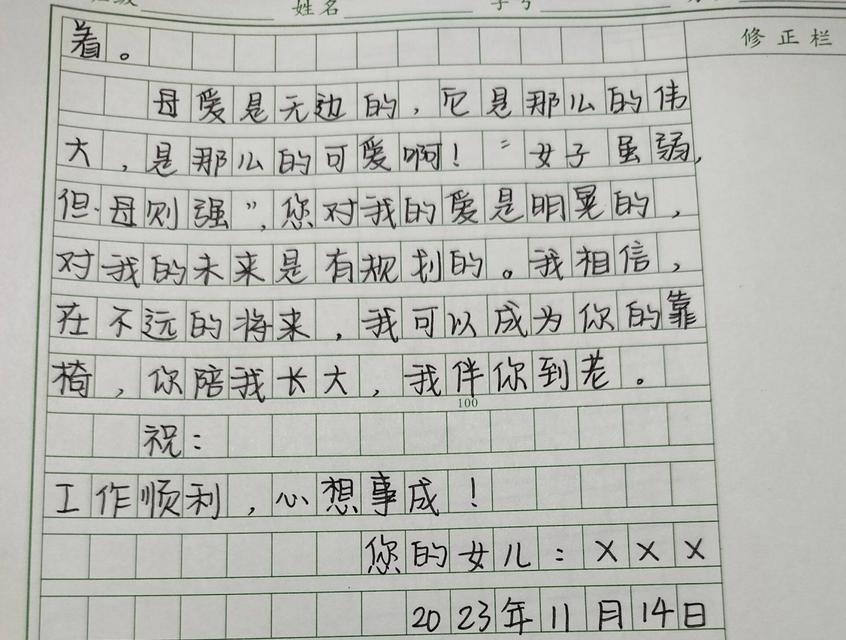 姓名
修正栏
着。
母爱是无边的，它是那么的伟
大，是那么的可爱啊！“女子虽弱，
但母则强”，您对我的爱是明晃的，
对我的未来是有规划的。我相信，
在不远的将来，我可以成为你的靠
椅，你陪我长大，我伴你到老。
100
祝：
工作顺利，心想事成！
您的女儿：×××
2023年11月14日